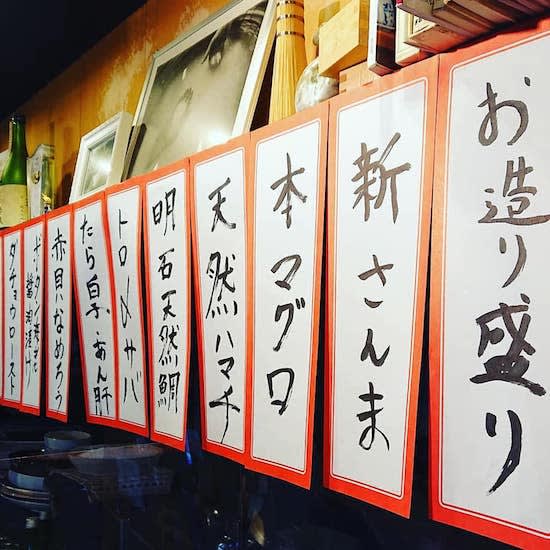 お造り盛り
新さんま
本マグロ
天然ハマチ
明石天然鯛
トロ〆サバ
たら白子、あん肝
赤貝いなめろう
ダチョウロースト